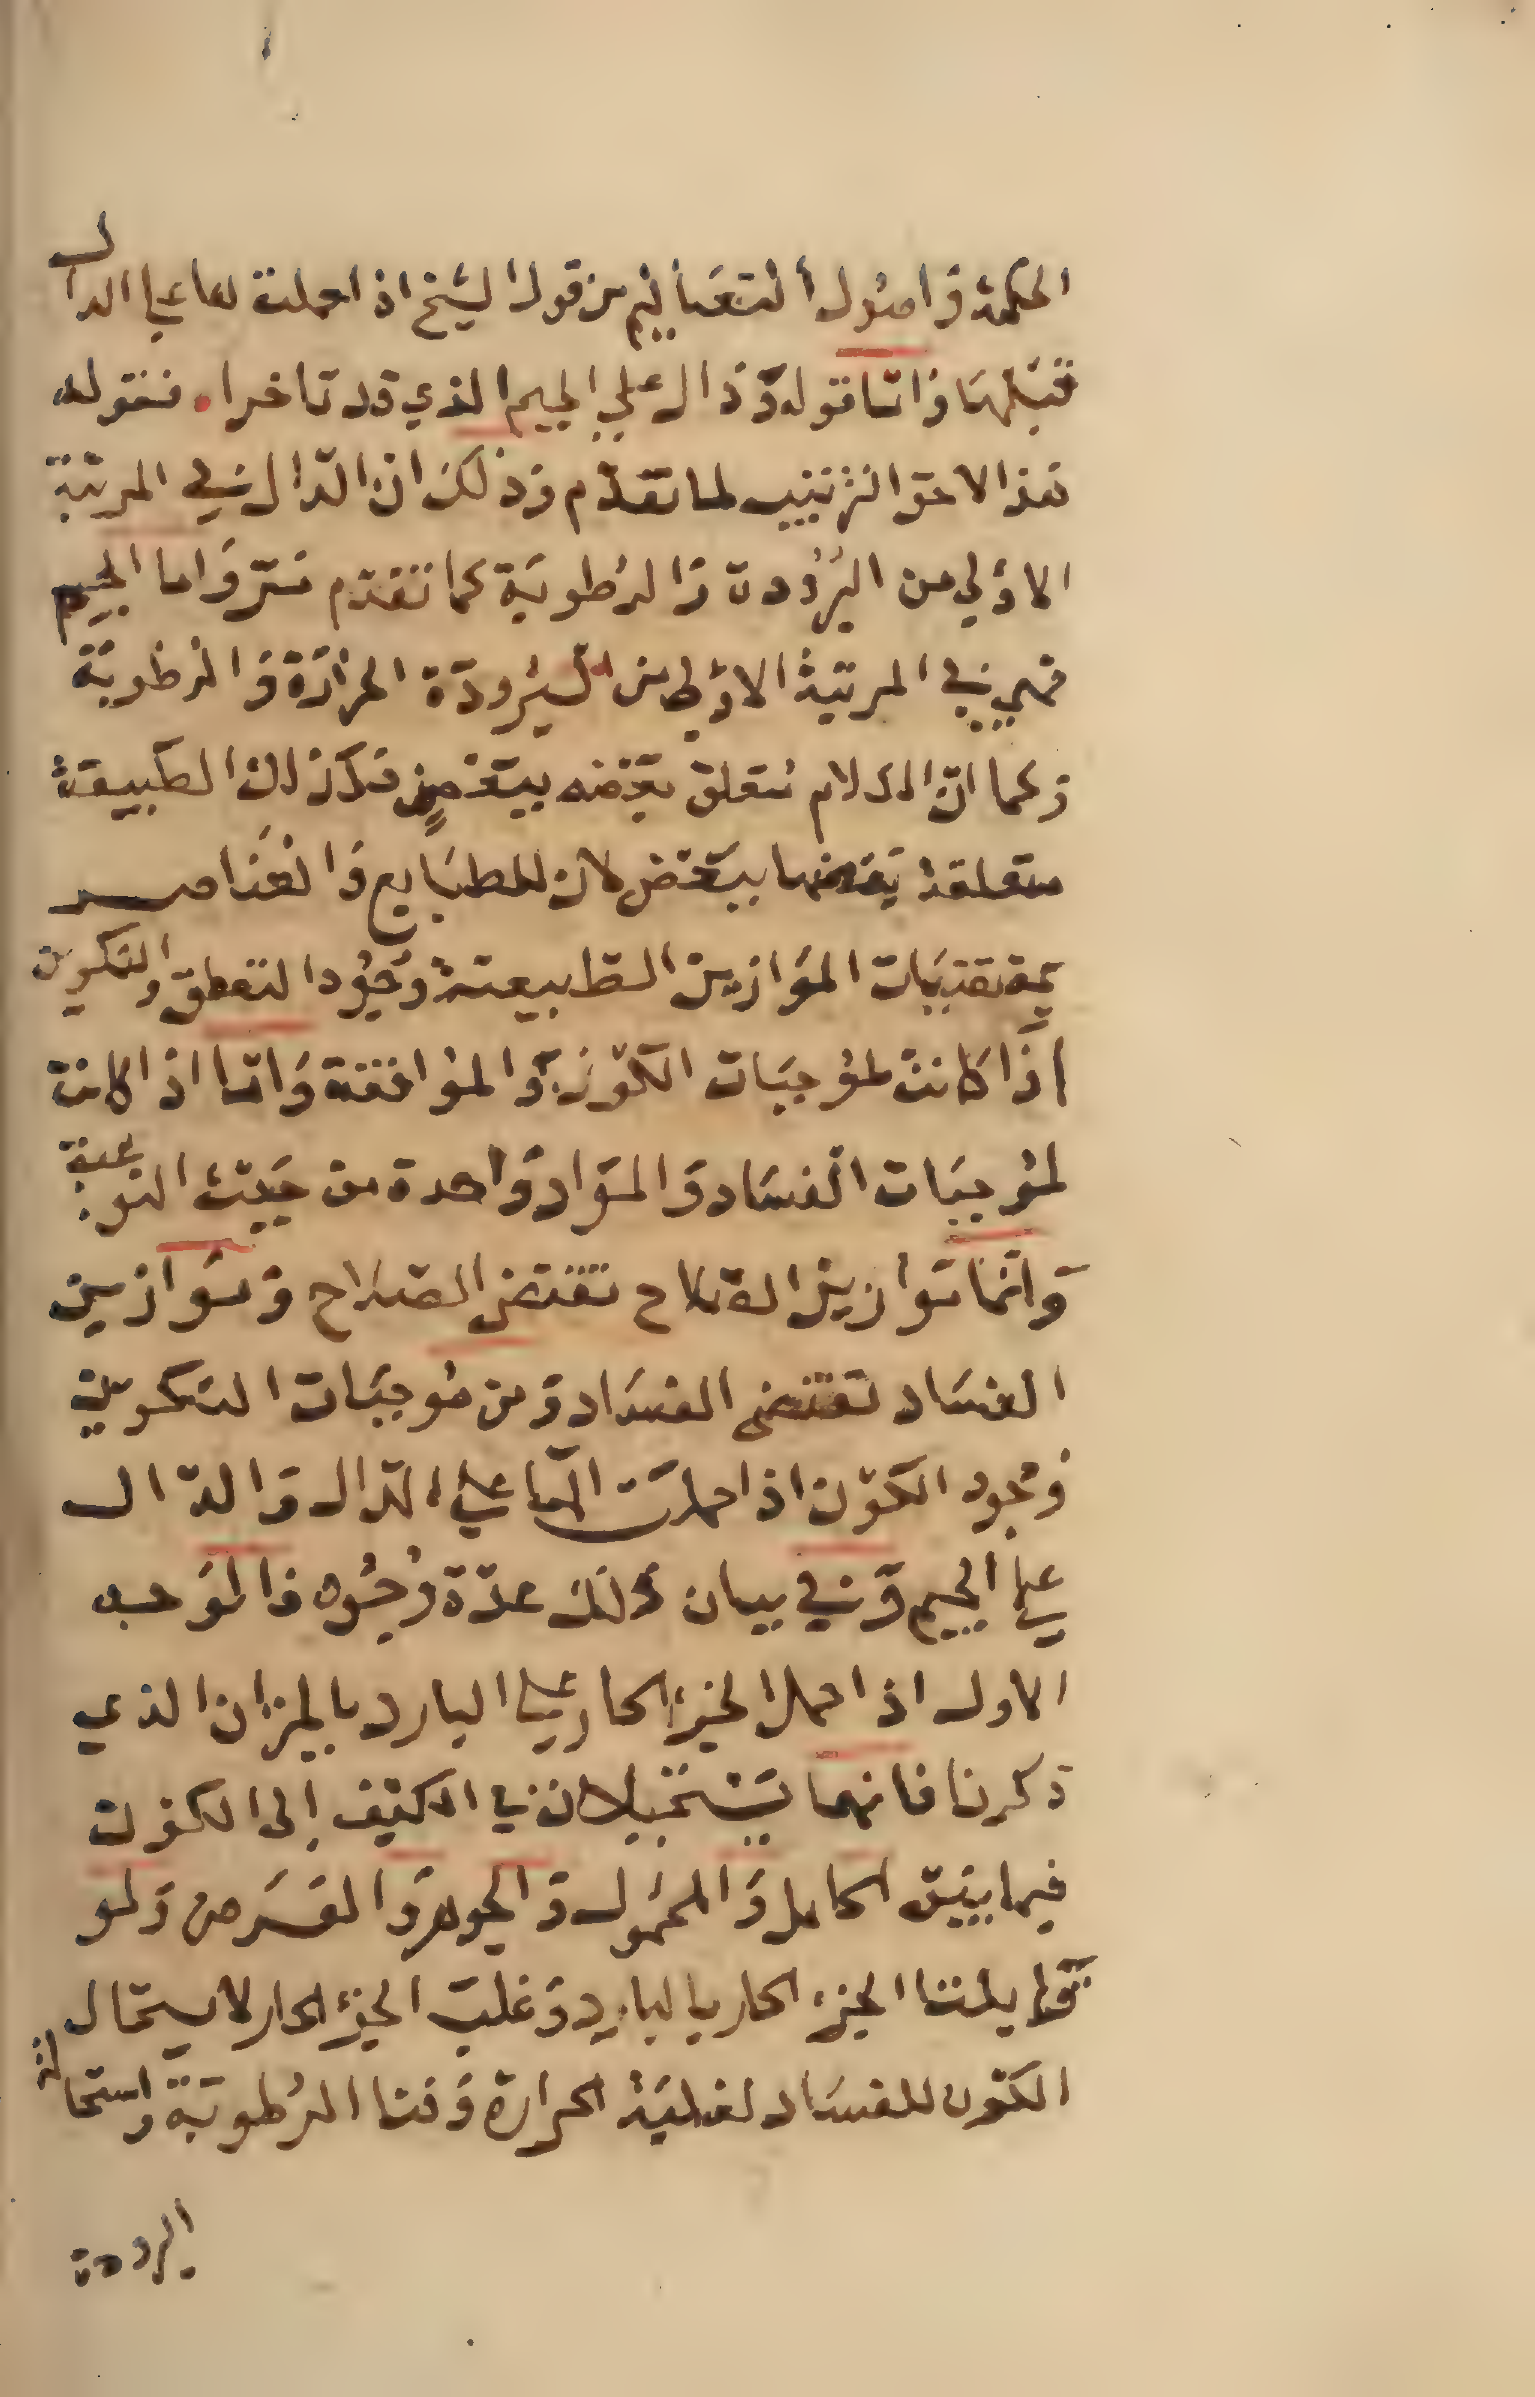 الحكمة وَاصُول التعَاليم من قول الشيخ اذا حملت لها علي الدال
قبَلهَا وَامّا قوله وَدَال علي الجيم الذي قد تاخرا. فقوله
هذا لاحق الترتيب لما تقدّم وَذلك انّ الدّال في المرتبة
الاوّلي من البرُودة وَالرطوبَة كما تقدّم شرّ وَاما الجيم
فهي في المرتبة الاوّلي من البرودَة الحرَارَة وَالرطوبَة
وَكما انّ الكلام متعلق بعَضه ببَعضٍ فكذلك الطبيعة
متعلقة بَعضها ببَعض لان للطبَايع وَالعنَاصر
بمقتضيَات الموَازين الطبيعتة وجُود التعلق والتكوين
اذَا كانت لموُجبَات الكَوّن وَالموُافقة وَامّا اذا كانت
لموُجبَات الفسَاد وَالموَاد وَاحدة من حَيث النوعية
وَانمّا موَازين الصَلاح تقتضي الصَلاح وَموَازين
الفسَاد تقتضي الفسَاد وَمن مُوجبَات التكوين
وَجود الكوّن اذا حملتَ الهَا علي الدّال وَالدّال
علي الجيم وَفي بيان ذلك عدّة وُجُوه فالوَجه
الاول اذا حمل الجزء الحار علي البارد بالميزان الذي
ذكرنا فانهما يَسْتحَيلان في الكيف إلى الكوَن
فيما بيَن الحامل وَالمحمُول وَالجوهر وَالعَرَض وَلو
قوَابلنا الجزء الحار بالبارد وَغلبَ الجزء الحار لاستحال
الكَوّن للفسَاد لغلبَة الحرارة وَفنا الرُطوبَة واستحالة
البرودة